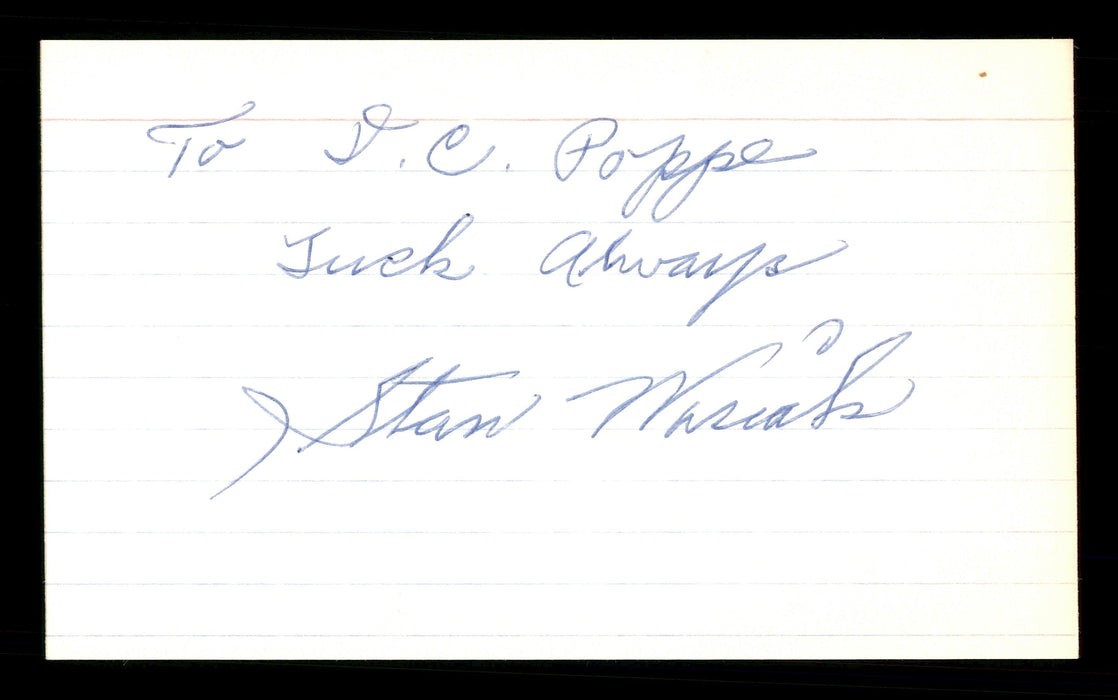 To D. C. Poppe
Luck Always
Stan Wasiak